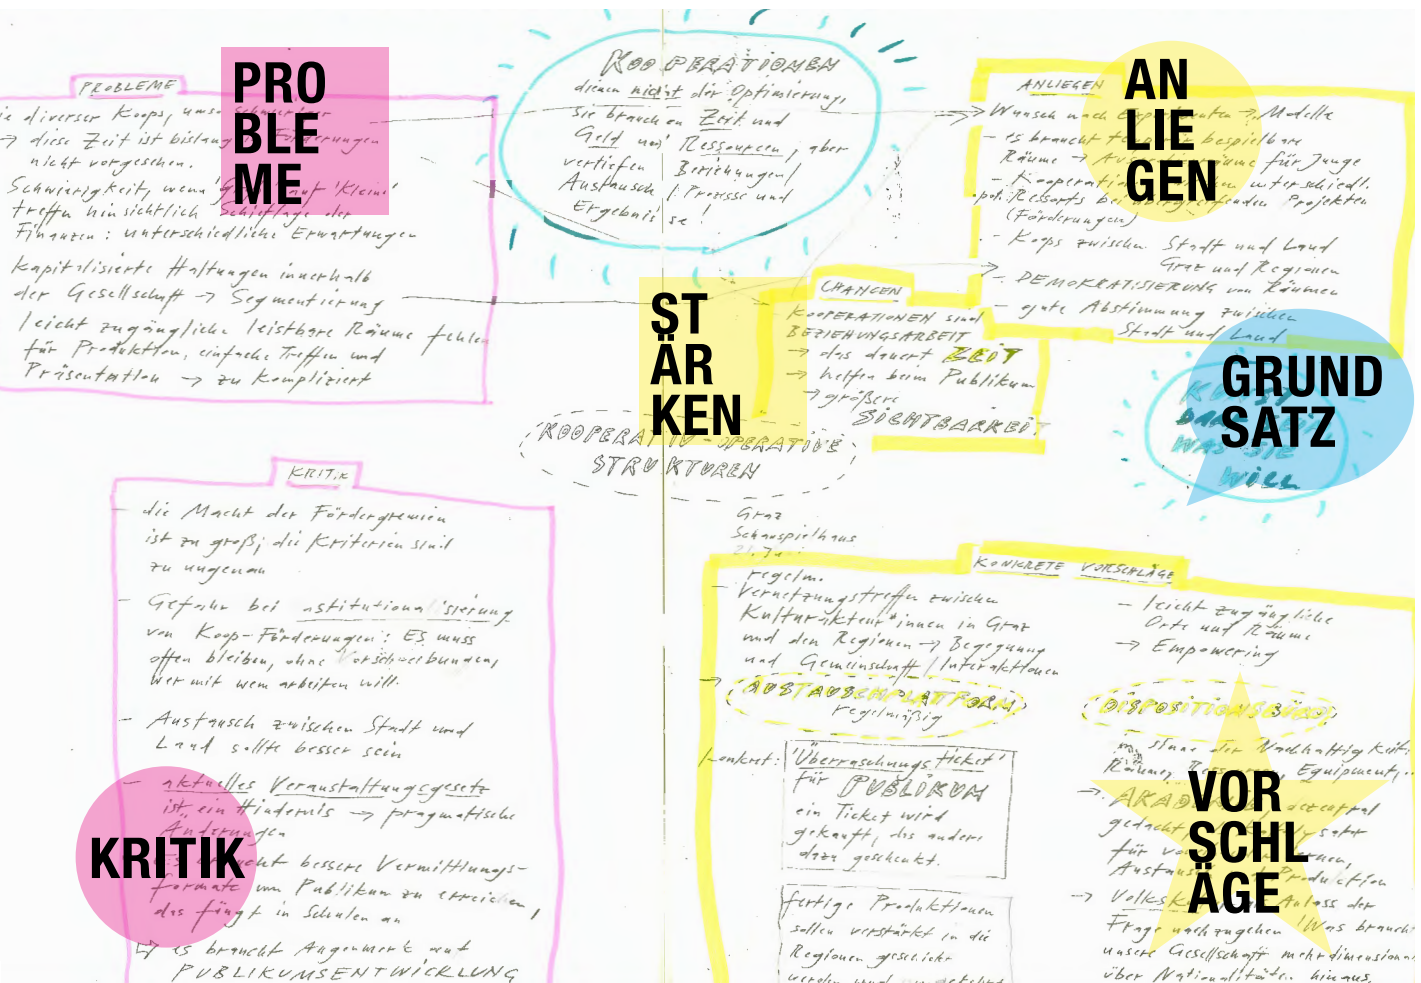 PROBLEME
PRO
BLE
ME
diverser Koops, umso schwieriger
→ diese Zeit ist bislang in Förderungen
nicht vorgesehen.
Schwierigkeit, wenn 'Große' auf 'Kleine'
treffen hinsichtlich Schieflage der
Finanzen: unterschiedliche Erwartungen
Kapitalisierte Haltungen innerhalb
der Gesellschaft → Segmentierung
leicht zugängliche leistbare Räume fehlen
für Produktion, einfache Treffen und
Präsentation → zu kompliziert
KOOPERATIONEN
dienen nicht der Optimierung,
sie brauchen Zeit und
Geld und Ressourcen, aber
vertiefen Beziehungen/
Austausch / Prozesse und
Ergebnisse!
ANLIEGEN
AN
LIE
GEN
Wunsch nach Experimenten → Modelle
- es braucht bespielbare
Räume → für Junge
- Kooperation unterschiedl.
pol. Ressorts bei übergreifenden Projekten
(Förderungen)
- Koops zwischen Stadt und Land
Graz und Regionen
- DEMOKRATISIERUNG von Räumen
- gute Abstimmung zwischen
Stadt und Land
ST
ÄR
KEN
CHANCEN
KOOPERATIONEN sind
BEZIEHUNGSARBEIT
→ das dauert ZEIT
→ helfen beim Publikum
→ größere
SICHTBARKEIT
GRUND
SATZ
KUNST
WAS SIE
WILL
KOOPERATIV-OPERATIVE
STRUKTUREN
Graz
Schauspielhaus
KRITIK
- die Macht der Fördergremien
ist zu groß; die Kriterien sind
zu ungenau
- Gefahr bei Institutionalisierung
von Koop-Förderungen: ES muss
offen bleiben, ohne Vorschreibungen,
wer mit wem arbeiten will.
- Austausch zwischen Stadt und
Land sollte besser sein
- aktuelles Veranstaltungsgesetz
ist ein Hindernis → pragmatische
Änderungen
KRITIK
Es braucht bessere Vermittlungs-
formate um Publikum zu erreichen,
das fängt in Schulen an
↳ es braucht Augenmerk auf
PUBLIKUMSENTWICKLUNG
KONKRETE VORSCHLÄGE
regelm.
- Vernetzungstreffen zwischen
Kulturakteur*innen in Graz
und den Regionen → Begegnung
und Gemeinschaft / Interaktionen
→ AUSTAUSCHPLATTFORM
regelmäßig
konkret: 'Überraschungsticket'
für PUBLIKUM
ein Ticket wird
gekauft, das andere
dazu geschenkt.
fertige Produktionen
sollen verstärkt in die
Regionen geschickt
werden und umgekehrt
- leicht zugängliche
Orte und Räume
→ Empowering
DISPOSITIONSBÜRO
im Sinne der Nachhaltigkeit:
Räume, Equipment,..
→ AKADEMIE dezentral
gedacht,
für
Austausch Produktion
VOR
SCHL
ÄGE
→ Anlass der
Frage nachzugehen: Was braucht
unsere Gesellschaft mehrdimensional
über Nationalitäten hinaus.